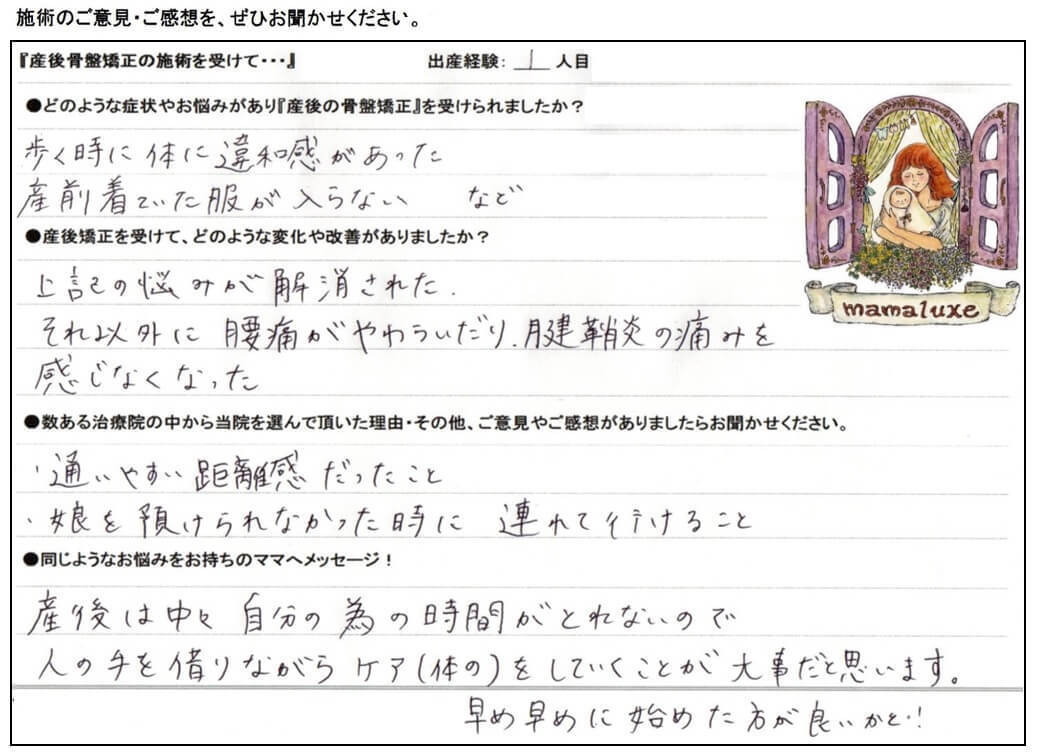 施術のご意見・ご感想を、ぜひお聞かせください。
『産後骨盤矯正の施術を受けて・・・』 出産経験: 1 人目
●どのような症状やお悩みがあり『産後の骨盤矯正』を受けられましたか？
歩く時に体に違和感があった
産前着ていた服が入らない など
●産後矯正を受けて、どのような変化や改善がありましたか？
上記の悩みが解消された.
それ以外に腰痛がやわらいだり、腱鞘炎の痛みを
感じなくなった
mamaluxe
●数ある治療院の中から当院を選んで頂いた理由・その他、ご意見やご感想がありましたらお聞かせください。
・通いやすい距離感だったこと
・娘を預けられなかった時に 連れて行けること
●同じようなお悩みをお持ちのママへメッセージ！
産後は中々 自分の為の時間がとれないので
人の手を借りながらケア(体の)をしていくことが大事だと思います。
早め早めに始めた方が良いかと・!